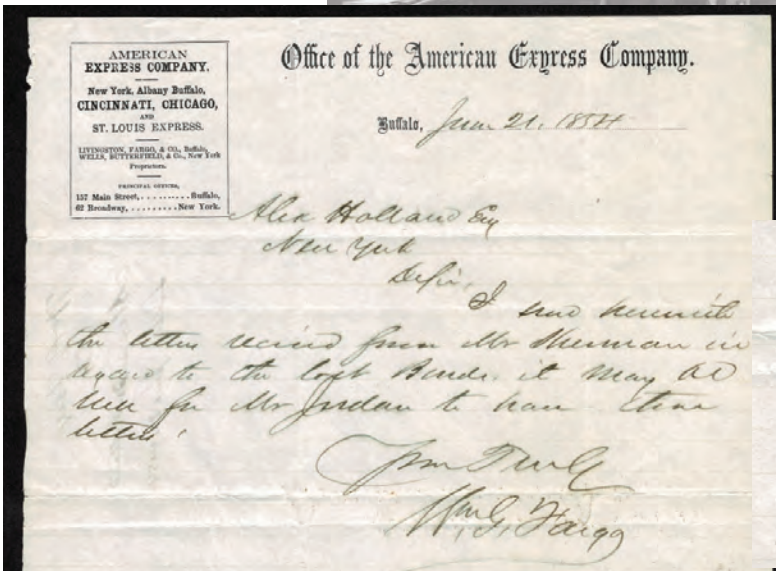 AMERICAN
EXPRESS COMPANY.
New York, Albany Buffalo,
CINCINNATI, CHICAGO,
AND
ST. LOUIS EXPRESS.
LIVINGSTON, FARGO, & CO., Buffalo,
WELLS, BUTTERFIELD, & Co., New York
Proprietors.
PRINCIPAL OFFICES,
157 Main Street, . . . . . . . . . Buffalo,
62 Broadway, . . . . . . . . . New York.
Office of the American Express Company.
Buffalo, June 21, 1854
Alex Holland Esq
New York
D Sir,
I send herewith
the letters received from Mr Sherman in
regard to the lost Bonds. it may be
well for Mr Jordan to have these
letters.
Yours Truly
Wm G. Fargo